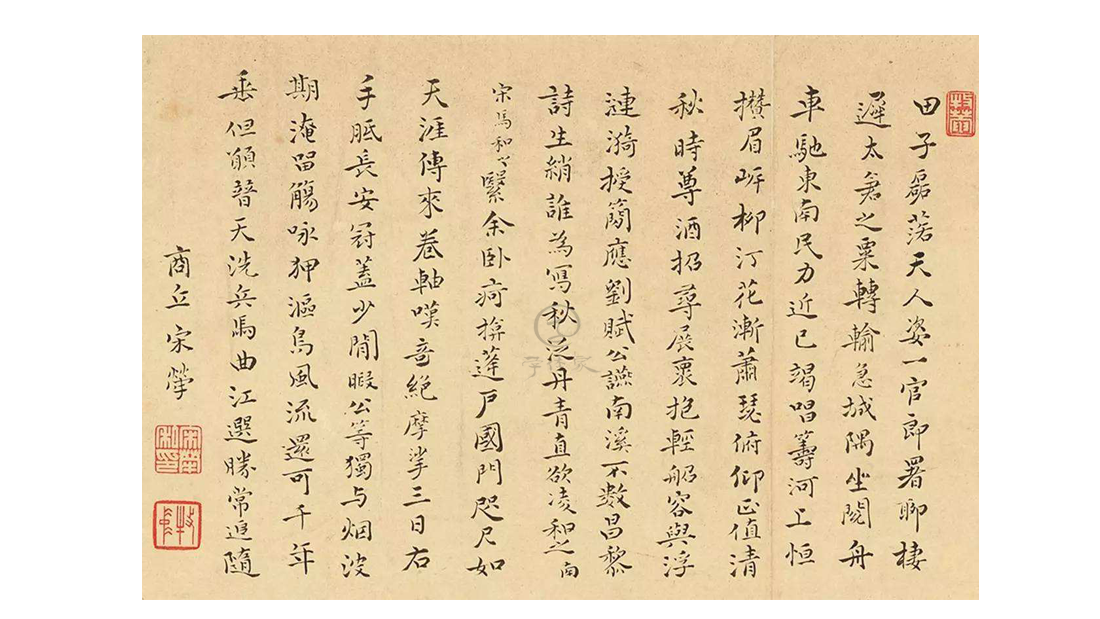 田子磊落天人姿一官郎署聊棲
遲太倉之粟轉輸急城隅坐閱舟
車馳東南民力近已竭唱籌河上恒
攢眉岍柳汀花漸蕭瑟俯仰正值清
秋時尊酒招尋展裏抱輕船容與浮
漣漪授簡應劉賦公讌南溪不數昌黎
詩生綃誰為寫秋泛丹青直欲凌和之南
宋馬和之繄余卧疴揜蓬戶國門咫尺如
天涯傳來卷軸嘆奇絕摩挲三日右
手胝長安冠蓋少閒暇公等獨与烟波
期淹留觴咏狎漚鳥風流還可千年
垂但願普天洗兵馬曲江選勝常追隨
商丘宋犖